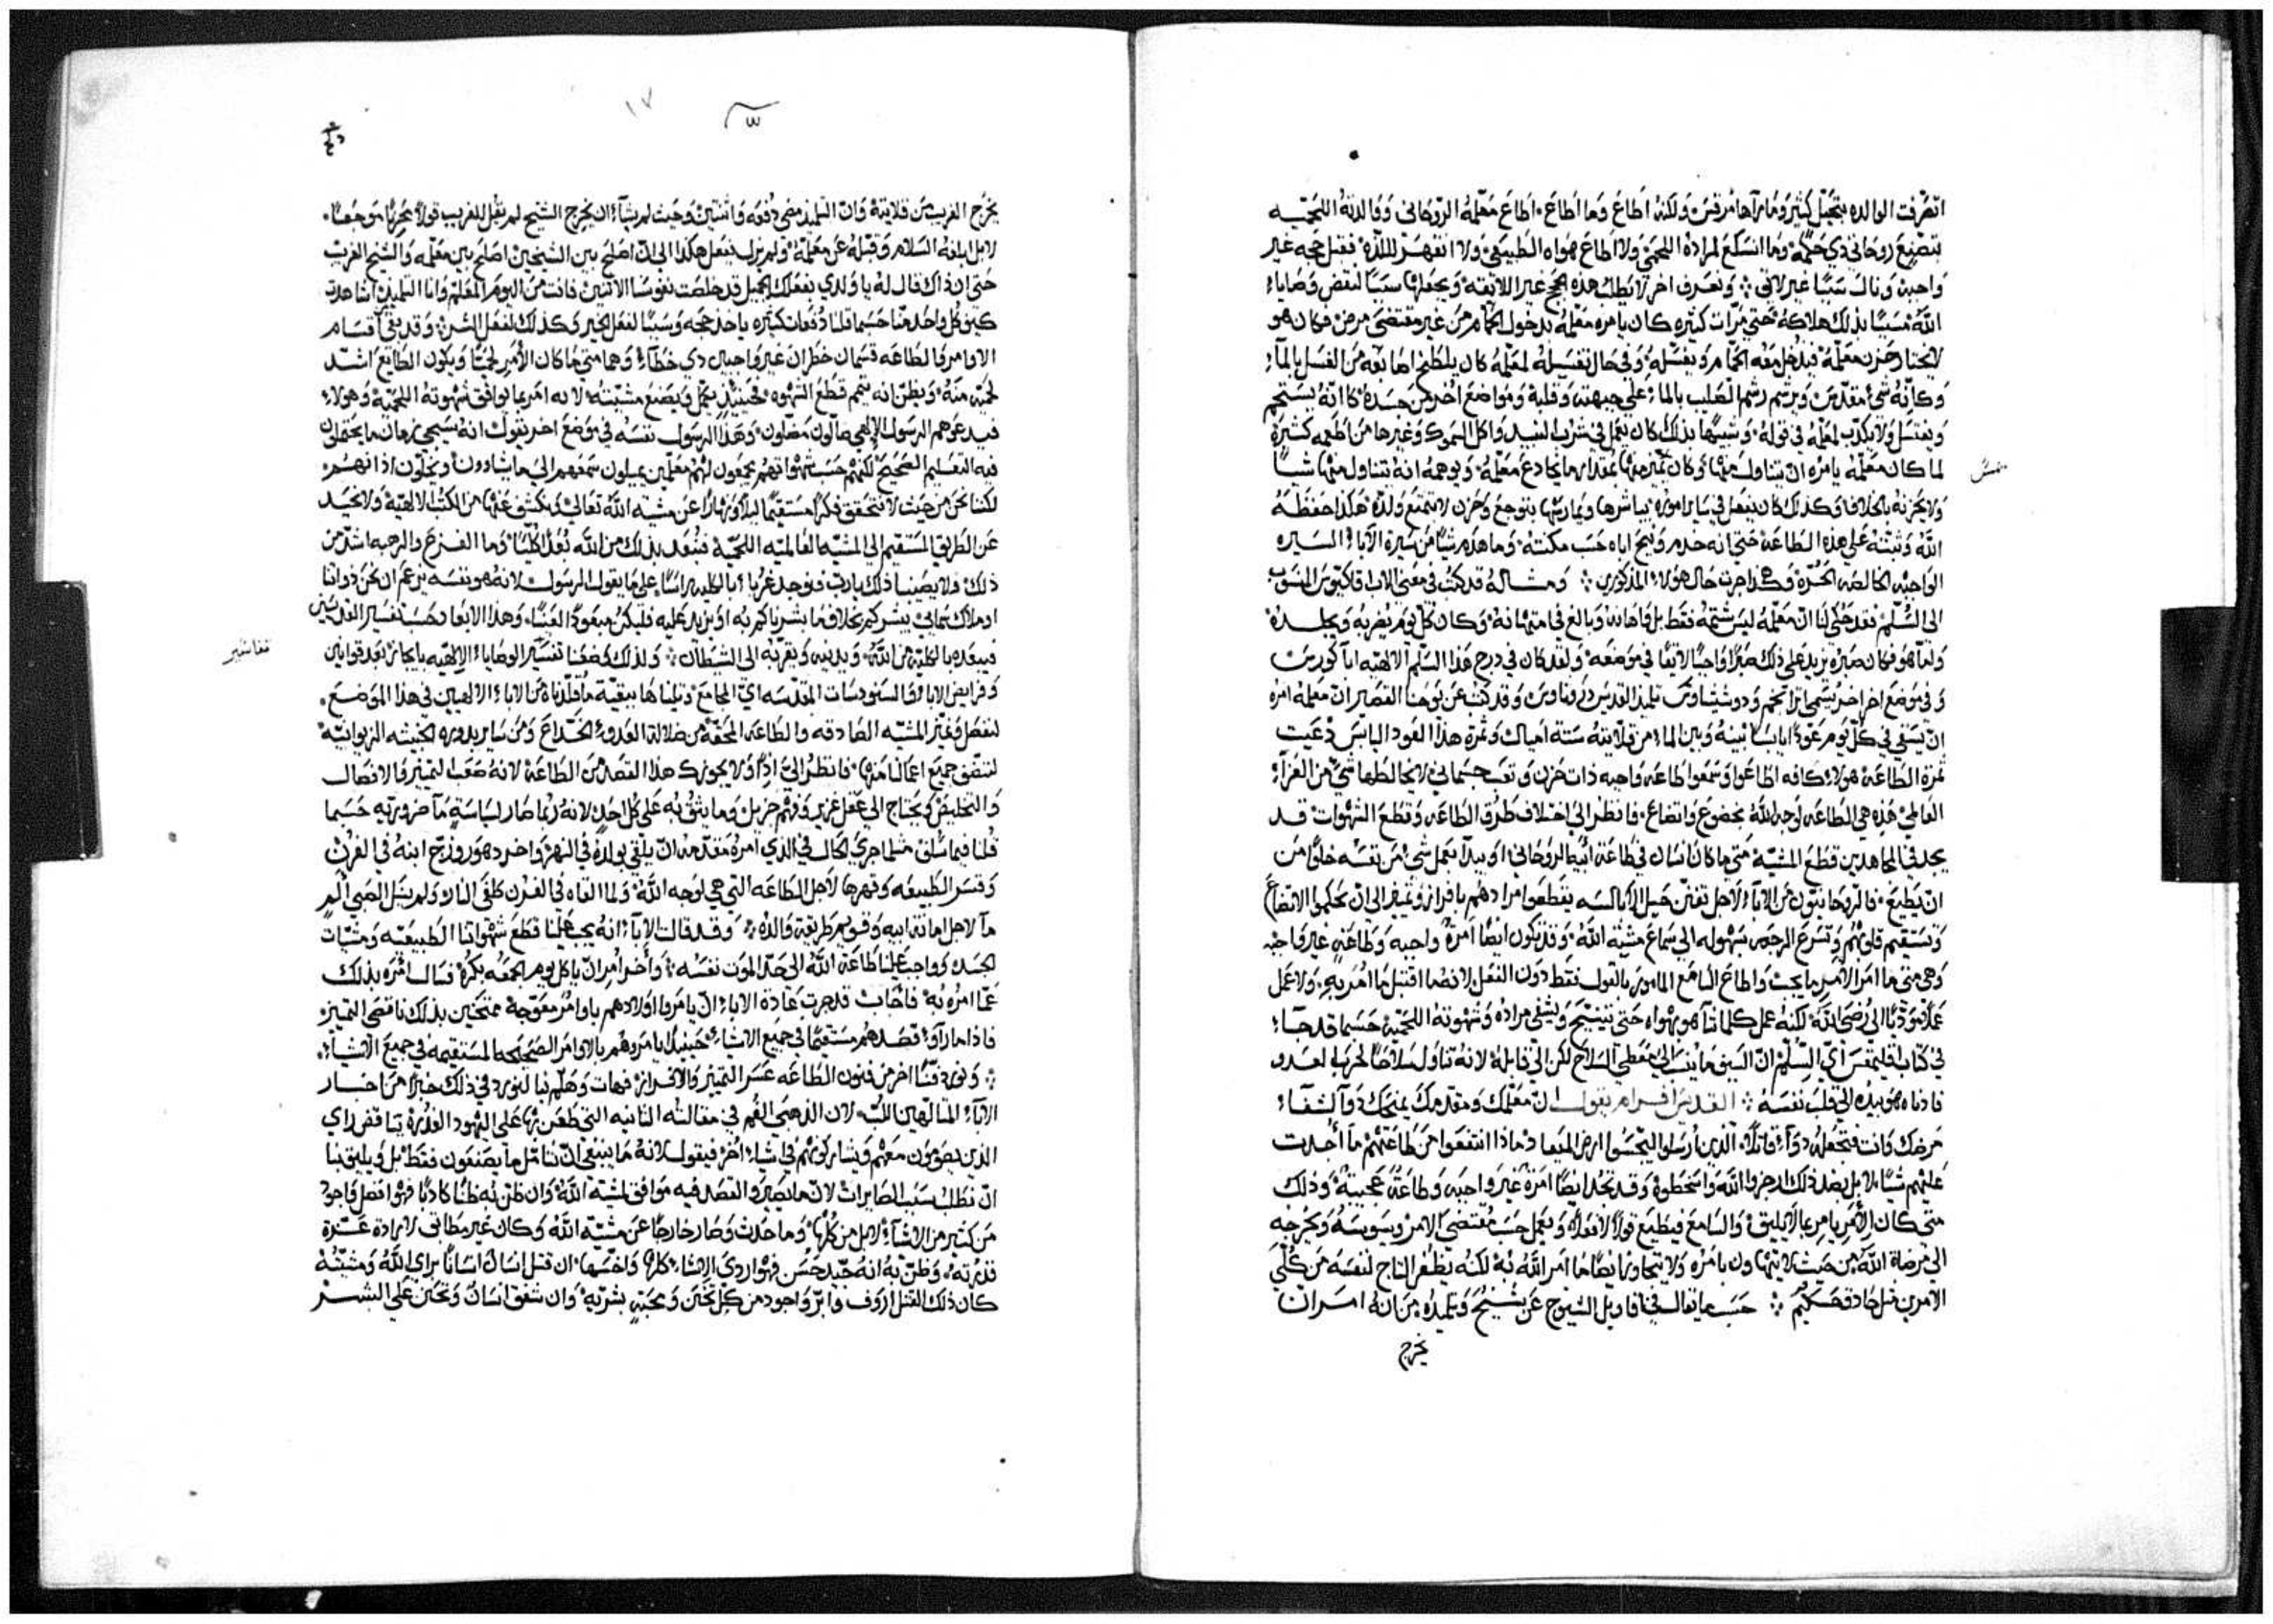 انصرفت الوالده بتجيل كثير وما راها مرقس ولكنه اطاع وما اطاع. اطاع معلمه الروحاني ووالدته اللحميه
بتصنيع روحاني ذي حكمه ولا اطاع هواه الطبيعي ولا انقهر للذه فقبل حجه غير
واجبه ونال سببا غير لائق وتعرف اخر لا يطلب هذه الحجج غير اللائقه ويجعلها سببا لنقض وصايا
الله مسببا بذلك هلاكه حتى مرات كثيره كان يامره معلمه بدخول الحمام من غير مقتضى مرض فكان هو
لا يختار حزن معلمه فيدخل معه الحمام ويغسله وفي حال تغسيله لمعلمه كان يلطخ اصابعه من الغسل بالماء
وكانه شي مقدس ويرشم رشم الصليب بالماء على جبهته وقلبه ومواضع اخر من جسده كانه يستحم
ويغتسل ولا يكذب لمعلمه في قوله وشبيها بذلك كان يعمل في شرب النبيد واكل السموك وغيرها من اطعمه كثيرة
لما كان معلمه يامره ان يتناول منها وكان بمقدار ما يخادع معلمه ويوهمه انه يتناول منها شيا
ولا يحزنه بالخلاف وكذلك كان يفعل في ساير اموره يباشرها ويمارسها بتوجع وحزن لا بتمتع ولذه هكذا حفظه
الله وثبته على هذه الطاعه حتى انه خدم ونيح اباه حسب مكنته وما هدم شيا من سيرة الابا السيره
الواجبه الخالصه الحره وهكذا جرت حال هولاء المذكورين ومثاله قد كتب في معنى الاب اقاكيوس المنسوب
الى السلم فقد حكى لنا ان معلمه ليس شتمه فقط بل واهانه وبالغ في امتهانه وكان كل يوم يضربه ويجلده
ولما هو فكان صبره يزيد على ذلك صبرا واجبا لايقا في موضعه ولقد كان في درج هذا السلم الالهيه
وفي موضع اخر اخر يسمى تلميذ القديس وقد كتب عن يوحنا القصير ان معلمه امره
ان يسقي في كل يوم عودا يابسا بينه وبين الماء من قلايته ستة اميال وثمرة هذا العود اليابس دعيت
ثمرة الطاعه هولاء كافه اطاعوا وسمعوا طاعه واجبه ذات حزن وتعب جسماني لا يخالطها شي من العزاء
العالمي هذه هي الطاعه لوجه الله بخضوع واتضاع فانظر الى اختلاف طرق الطاعه وقطع الشهوات قد
يجد في المجاهدين قطع المشيه متى ما كان انسان في طاعة ابيه الروحاني او يبدا بعمل شي من نفسه خلوا من
ان يطيع. فالروحانيون من الاباء لاجل تفنن حيل الابالسه يقطعوا مرادهم بافراز وتمييز الى ان يحكموا الاتضاع
وتستقيم قلوبهم وتسرع الرجعه بسهوله الى سماع مشية الله وقد تكون ايضا امره واجبه وطاعه غير واجبه
وهي متى ما امر الامر ما يجب واطاع السامع المامور بالقول فقط دون الفعل لانه ما اقتبل ما امر به ولا عمل
عملا يودي الى رضى الله لكنه عمل كلما هو بهواه حتى يتنيح ويشفي مراده وشهوته اللحميه حسبما قد جاء
في كتاب اقليمقس اي السلم ان السيف ما ينسب الى معطي السلاح لكن الى قابله لانه تناول سلاحا لحرب العدو
فادناه هو بيده الى قلب نفسه القديس افرام يقول ان معلمك ومقدمك يمنحك دواء لشفاء
مرضك وانت فتجعله دواء قاتلا الذين ارسلوا ليجسوا ارض الميعاد ماذا انتفعوا من طاعتهم ما اجدت
عليهم شيا لا بل بضد ذلك رجزوا الله واسخطوه وقد نجد ايضا امره غير واجبه وطاعه عجيبه وذلك
متى كان الامر يامر بما لا يليق والسامع فيطيع قولا لا فعلا ويعمل حسب مقتضى الامر ويسوسه ويخرجه
الى مرضاة الله من حيث لا يتهاون بامره ولا يتجاوز ايضا ما امر الله به لكنه يظفر التاج لنفسه من كلي
الامرين مثل حادق حكيم حسب ما يقال في اقاويل الشيوخ عن شيخ وتلميذه من انه امر ان
يخرج
١٧
يخرج الغريب من قلايته وان التلميذ مضى دفعه واثنتين وحيث لم يشاء ان يخرج الشيخ لم يقل للغريب قولا محزنا موجعا.
لا بل ابلغه السلام وقبله عن معلمه ولم يزل يفعل هكذا الى ان اصلح بين الشيخين اصلح بين معلمه والشيخ الغريب
حتى ان ذاك قال له يا ولدي بفعلك الجميل قد خلصت نفوسنا الاتنين فانت من اليوم المعلم وانا التلميذ اشاهدت
كيف كل واحد منا حسبما قلنا دفعات كثيره ياخذ حجه وسببا لفعل الخير وكذلك لفعل الشر وقد بقي اقسام
الاوامر والطاعه قسمان خطران غير واجبان ذي خطاء وهما متى ما كان الامر لحميا ويكون الطايع اشد
لحميه منه ويظن انه يتمم قطع الشهوه فحينيذ يكمل ويصنع مشيته لانه امر بما يوافق شهوته اللحميه وهولاء
فيدعوهم الرسول الالهي ضالون مضلون وهذا الرسول نفسه في موضع اخر يقول انه سيجي زمان ما يحتملون
فيه التعليم الصحيح لكنهم حسب شهواتهم يجمعون لهم معلمين يميلون سمعهم الى ما يشاوون ويحكون اذانهم
لكننا نحن من حيث لا نتحقق فكرا مستقيما ليلا ونهارا عن مشية الله تعالى ونكشف عنها من الكتب الالهيه ولا نحيد
عن الطريق المستقيم الى المشيه العالميه اللحميه فنبعد بذلك من الله بعدا كليا وما الفزع والرجبه اشد من
ذلك ولا يصبنا ذلك يا رب فنوجد غربا بالكليه راسا على ما يقول الرسول لانه هو نفسه يزعم ان نحن ذواتنا
او ملاك سماي يبشركم بخلاف ما بشرناكم به او يزيد عليه فليكن مبعودا لعينا وهذا الابعاد حسب تفسير القديسين
فيبعده بالكليه من الله ويدنيه ويقربه الى الشيطان ولذلك وضعنا تفسير الوصايا الالهيه بايجاز بعد قوانين
وفرايض الابا والسنودسات المقدسه اي المجامع وتلناها ببقية ما قلدناه من الاباء الالهيين في هذا الموضع.
لنفصل ونميز المشيه الصادقه والطاعه المحقه من ضلالة العدو الخداع ومن ساير بدوره الخبيثه الزيوانيه
لتتفق جميع اعمالنا منها. فانظر الي اذا ولا يحوزك هذا القصد من الطاعه لانه صعب التمييز والانفصال
والتخليص ويحتاج الى عقل غزير وفهم جزيل وما يثق به على كل احد لانه ربما صار لسياسة ما ضروريه حسبما
قلنا فيما سلف مثلما جرى الحال في الذي امره متقدمه ان يلقي بولده في النهر واخر دهور وزج ابنه في الفرن
وقسر الطبيعه وقهرها لاجل الطاعه التي هي لوجه الله ولما القاه في الفرن طفى النار ولم ينل الصبي الم
ما لاجل امانة ابيه وقويم طريقة والده وقد قالت الاباء انه يجب علينا قطع شهواتنا الطبيعيه ومشيات
الجسد وواجب علينا طاعة الله الى حد الموت نفسه واخر امر ان ياكل يوم الجمعه بكره فسال امره بذلك
عما امره به فاجاب قد جرت عادة الابا ان يامروا اولادهم باوامر معوجه ممتحنين بذلك ناقصي التمييز
فاذا ما راوا قصدهم مستقيما في جميع الاشياء حينيذ يامروهم بالاوامر الصحيحه المستقيمه في جميع الاشياء
ونورد فنا اخر من فنون الطاعه عسر التمييز والافراز فهات وهلم بنا لنورد في ذلك خبرا من اخبار
الاباء المتالهين اللب لان الذهبي الفم في مقالته الثانيه التي طعن بها على اليهود القذره يناقض راي
الذين يصومون معهم ويشاركونهم في اشياء اخر فيقول لانه ما ينبغي ان نتامل ما يصنعون فقط بل ويليق بنا
ان نطلب سبب الصايرات لان ما يصير والقصد فيه موافق لمشية الله وان ظن به ظنا كاذبا فهو افضل واجود
من كثير من الاشياء لا بل من كلها وما حدث وصار خارجا عن مشية الله وكان غير مطابق لارادة عزة
قدرته. وظن به انه جيد حسن فهو اردى الاشياء كلها واخسها. ان قتل انسان انسانا براي الله ومشيته
كان ذلك القتل اروف وابر واجود من كل تحنن ومحبة بشريه وان شفق انسان وتحنن على البشر